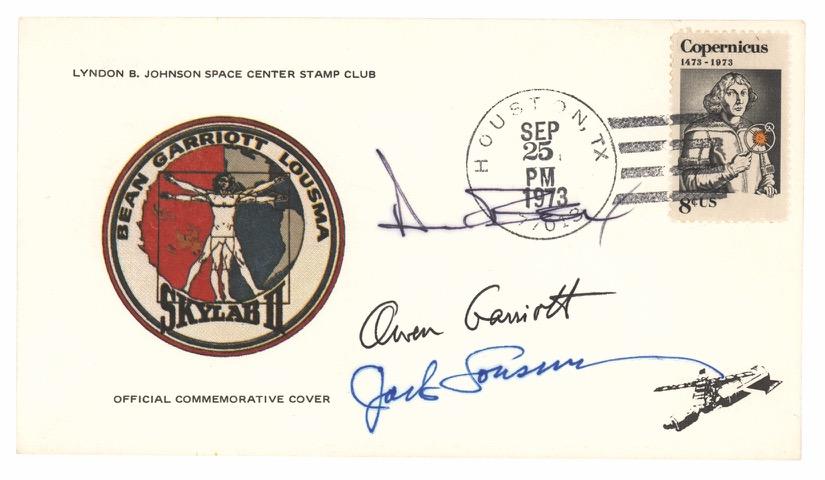 LYNDON B. JOHNSON SPACE CENTER STAMP CLUB
Copernicus
1473-1973
8¢US
HOUSTON, TX
SEP
25
PM
1973
BEAN GARRIOTT LOUSMA
SKYLAB II
Owen Garriott
Jack Lousma
OFFICIAL COMMEMORATIVE COVER